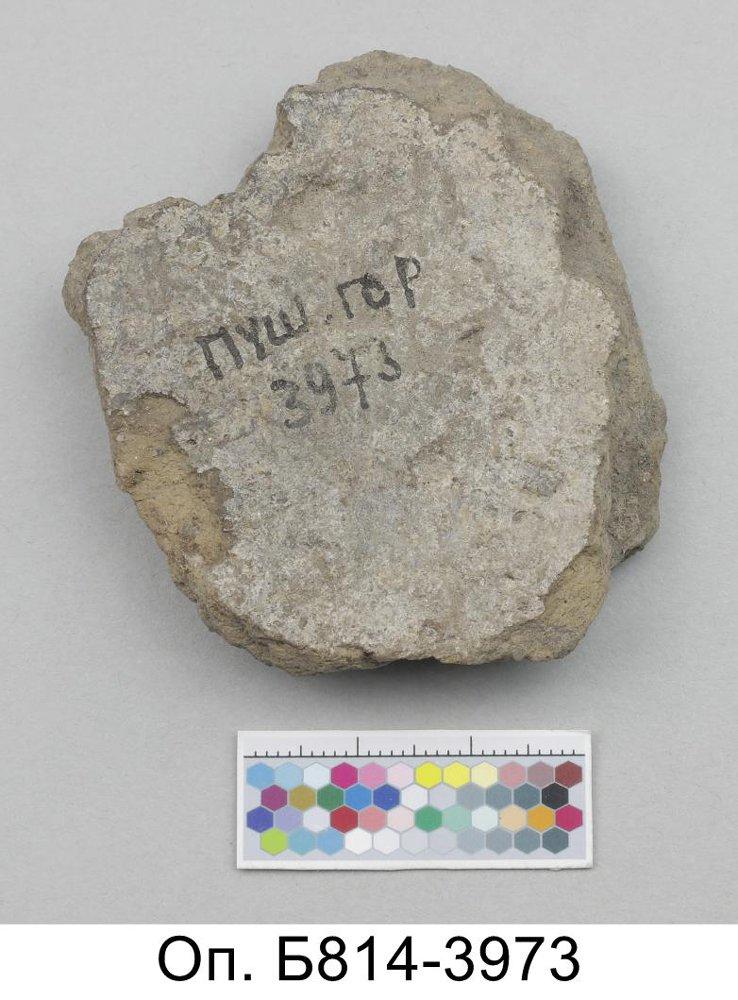 ПУШ.ГОР
3973
Оп. Б814-3973